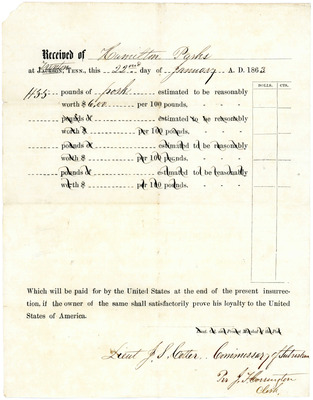 Received of Hamilton Parks
at Trenton, TENN., this 22nd day of January A. D. 1863
DOLLS. CTS.
1155 pounds of pork estimated to be reasonably
worth $ 6.00 per 100 pounds,
pounds of estimated to be reasonably
worth $ per 100 pounds,
pounds of estimated to be reasonably
worth $ per 100 pounds,
pounds of estimated to be reasonably
worth $ per 100 pounds,
Which will be paid for by the United States at the end of the present insurrec-
tion, if the owner of the same shall satisfactorily prove his loyalty to the United
States of America.
Lieut J. S. Commissary of Subsistence
Per J. Carrington
Clerk